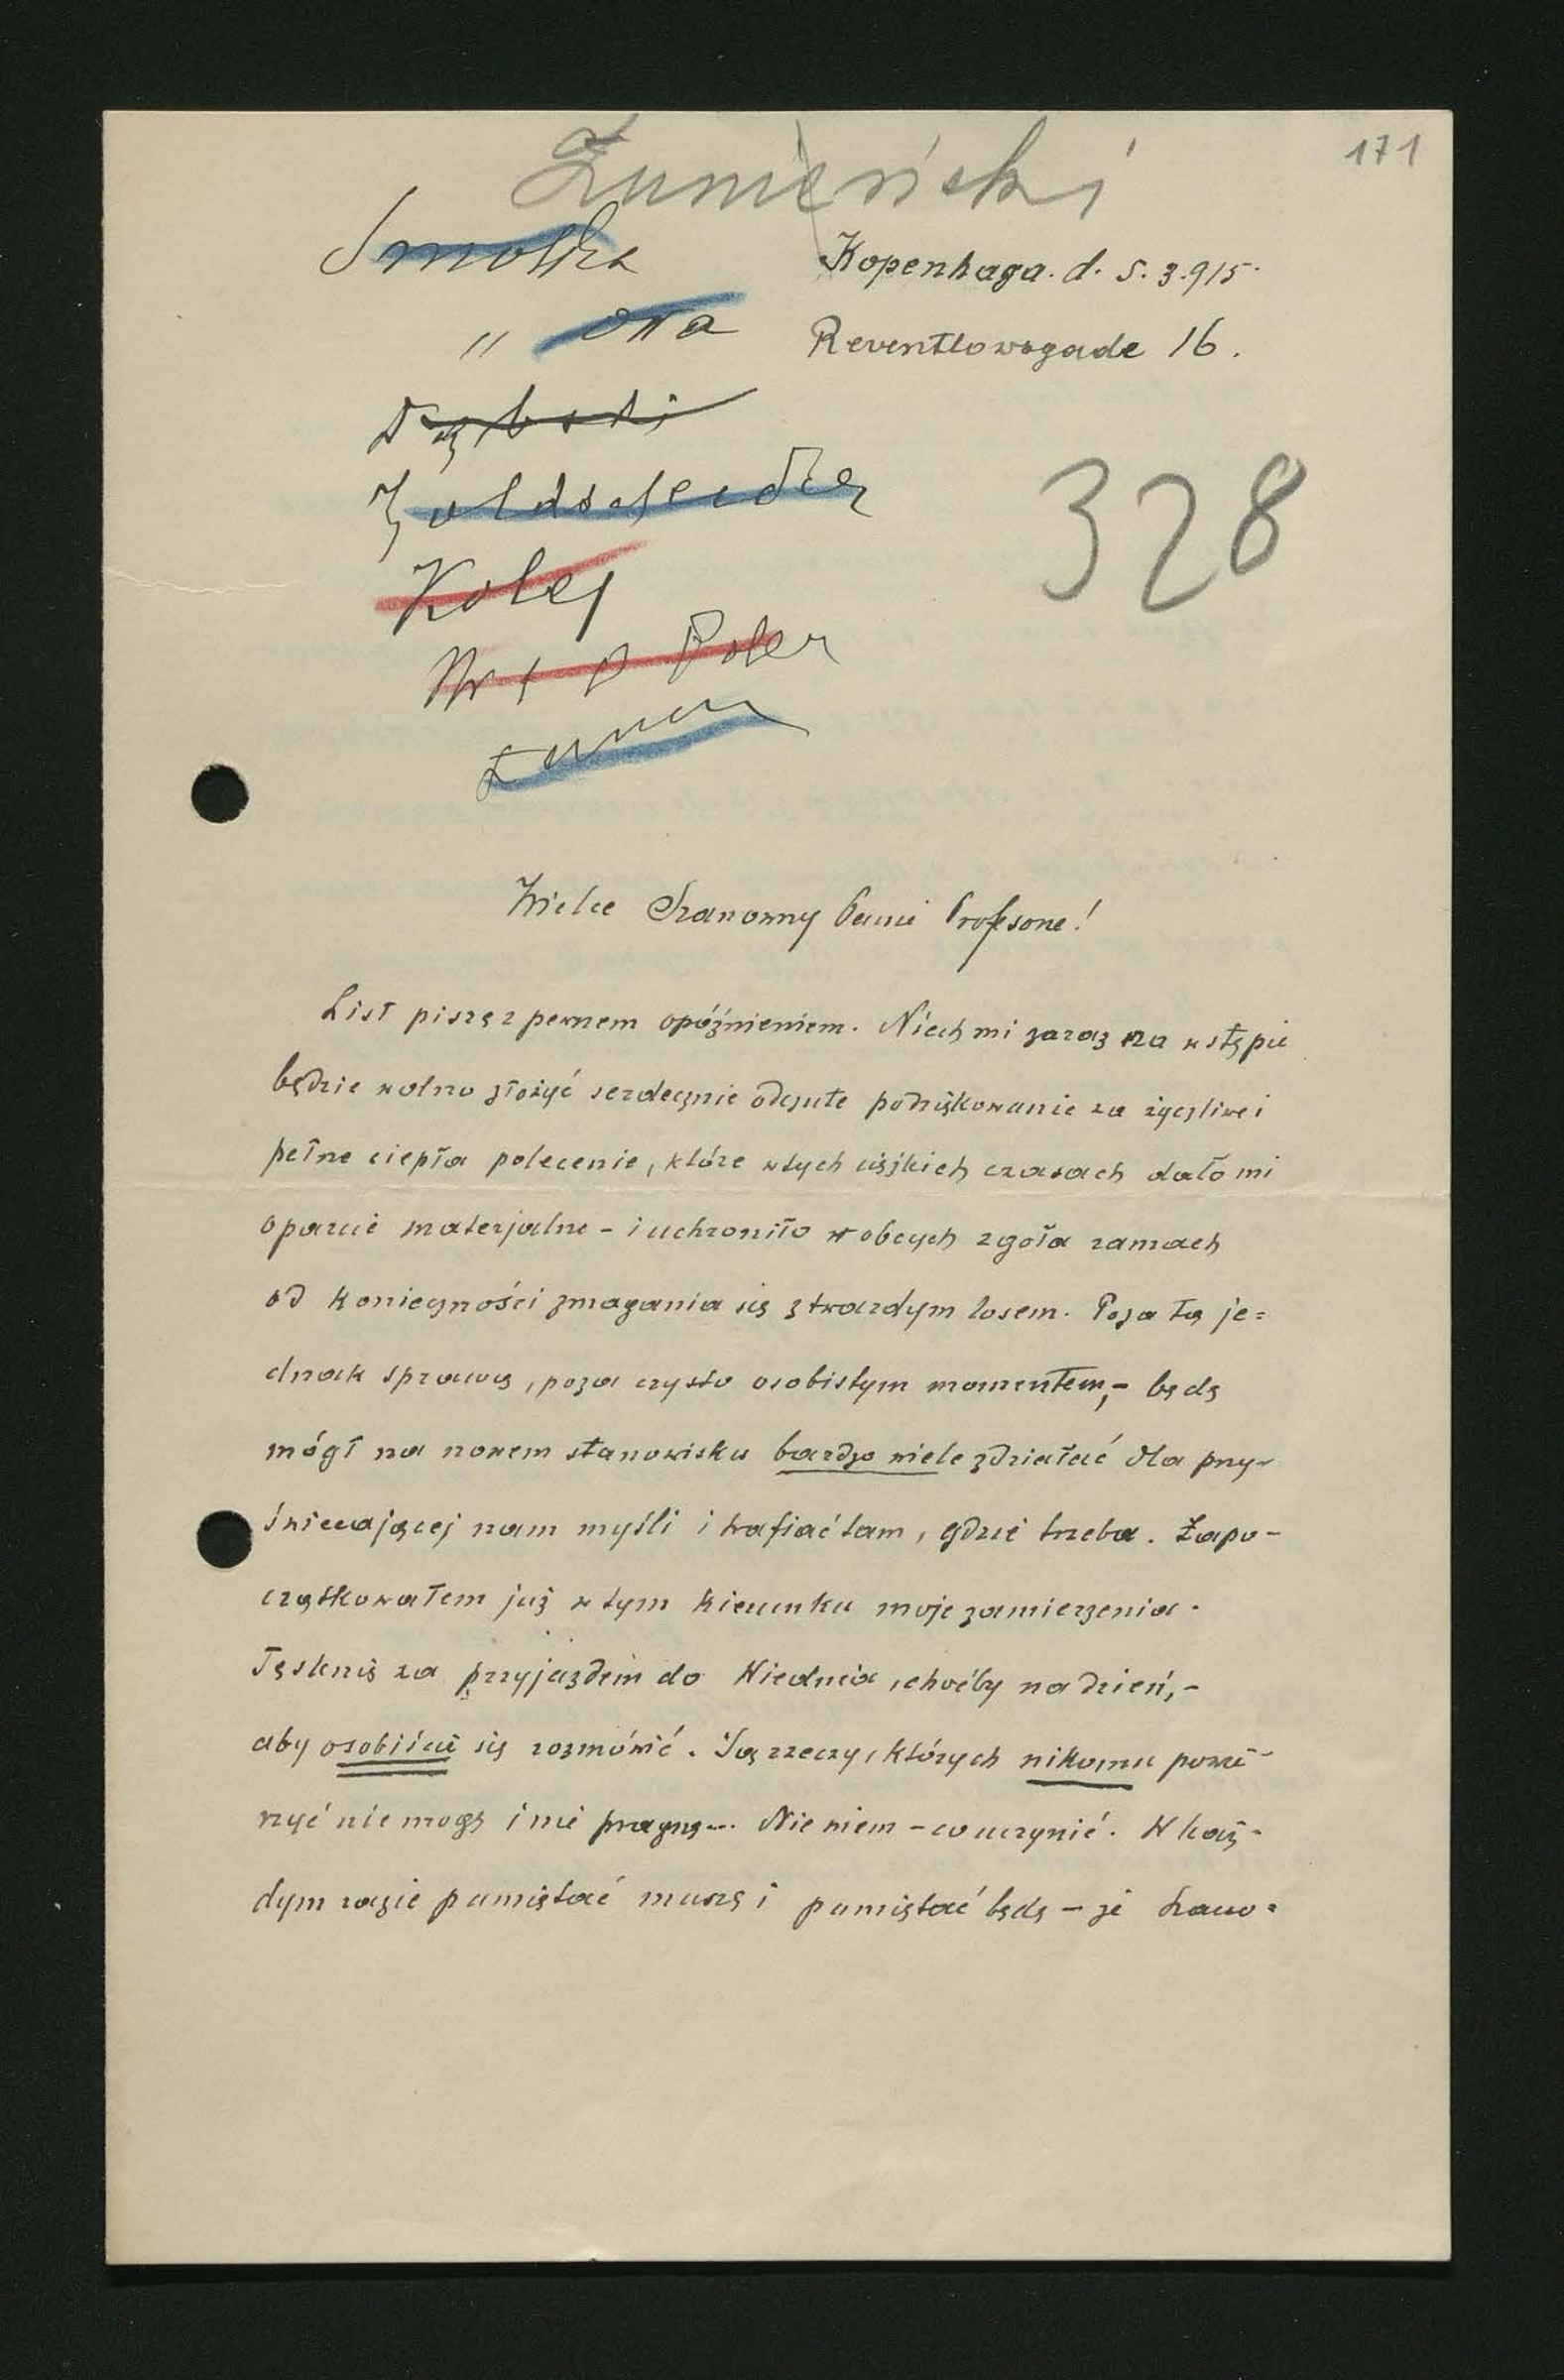 171
Kopenhaga. d. 5. 3. 915.
Reventlowsgade 16.
Smolka
" ona
328
Kolej
Wielce Szanowny Panie Profesorze!
List piszę z pewnem opóźnieniem. Niech mi zaraz na wstępie
będzie wolno złożyć serdecznie odczute podziękowanie za życzliwe i
pełne ciepła polecenie, które w tych ciężkich czasach dało mi
oparcie materjalne – i uchroniło w obcych zgoła ramach
od konieczności zmagania się z twardym losem. Poza tą je=
dnak sprawą, poza czysto osobistym momentem, – będę
mógł na nowem stanowisku bardzo wiele zdziałać dla przy-
świecającej nam myśli i trafiać tam, gdzie trzeba. Zapo-
czątkowałem już w tym kierunku moje zamierzenia.
Tęsknię za przyjazdem do Wiednia, choćby na dzień, –
aby osobiście się rozmówić. Są rzeczy, których nikomu powie-
rzyć nie mogę i nie pragnę... Nie wiem – co uczynić. W każ-
dym razie pamiętać muszę i pamiętać będę – że